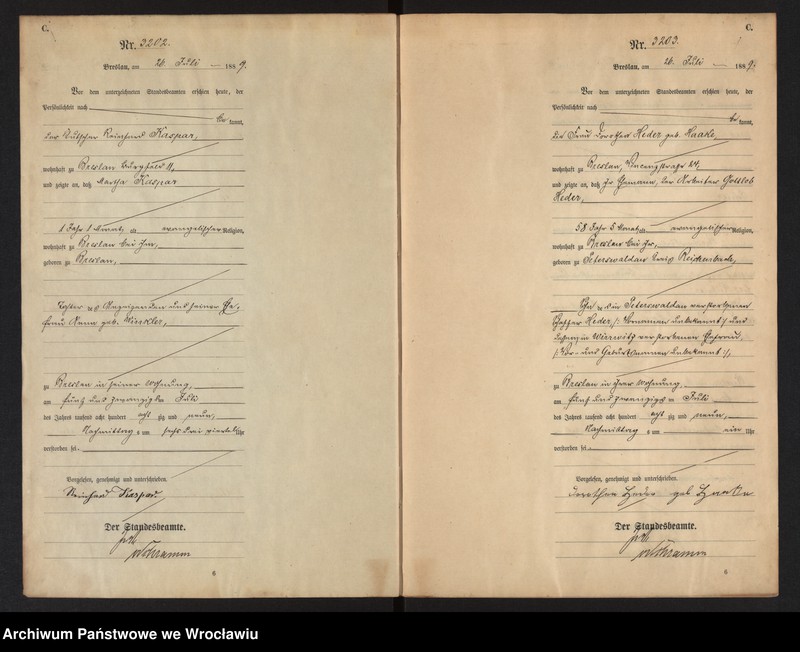 C.
Nr. 3202.
Breslau, am 26. Juli 1889.
Vor dem unterzeichneten Standesbeamten erschien heute, der
Persönlichkeit nach
be kannt,
der Kutscher Reinhard Kaspar,
wohnhaft zu Breslau 11,
und zeigte an, daß Martha Kaspar
1 Jahr 1 Monat, alt evangelischer Religion,
wohnhaft zu Breslau bei ihm,
geboren zu Breslau,
Tochter des Anzeigenden und seiner Ehe-
frau Anna geb. Winkler,
zu Breslau in seiner Wohnung,
am fünf und zwanzigsten Juli
des Jahres tausend acht hundert acht zig und neun,
Nachmittag s um sechs drei viertel Uhr
verstorben sei.
Vorgelesen, genehmigt und unterschrieben.
Reinhard Kaspar.
Der Standesbeamte.
6
C.
Nr. 3203.
Breslau, am 26. Juli 1889.
Vor dem unterzeichneten Standesbeamten erschien heute, der
Persönlichkeit nach
be kannt,
die Frau Dorothea Heder geb. Haake,
wohnhaft zu Breslau, Vincenzstraße 24,
und zeigte an, daß ihr Ehemann, der Arbeiter Gottlob
Heder,
58 Jahr 5 Monat, alt evangelischer Religion,
wohnhaft zu Breslau bei ihr,
geboren zu Peterswaldau Kreis Reichenbach,
Sohn des zu Peterswaldau verstorbenen
Heder /: Vornamen unbekannt :/ und
dessen in verstorbenen Ehefrau,
/: Vor- und Geburtsnamen unbekannt :/,
zu Breslau in ihrer Wohnung,
am fünf und zwanzigsten Juli
des Jahres tausend acht hundert acht zig und neun,
Nachmittag s um ein Uhr
verstorben sei.
Vorgelesen, genehmigt und unterschrieben.
Dorothea Heder geb Haake
Der Standesbeamte.
6
Archiwum Państwowe we Wrocławiu